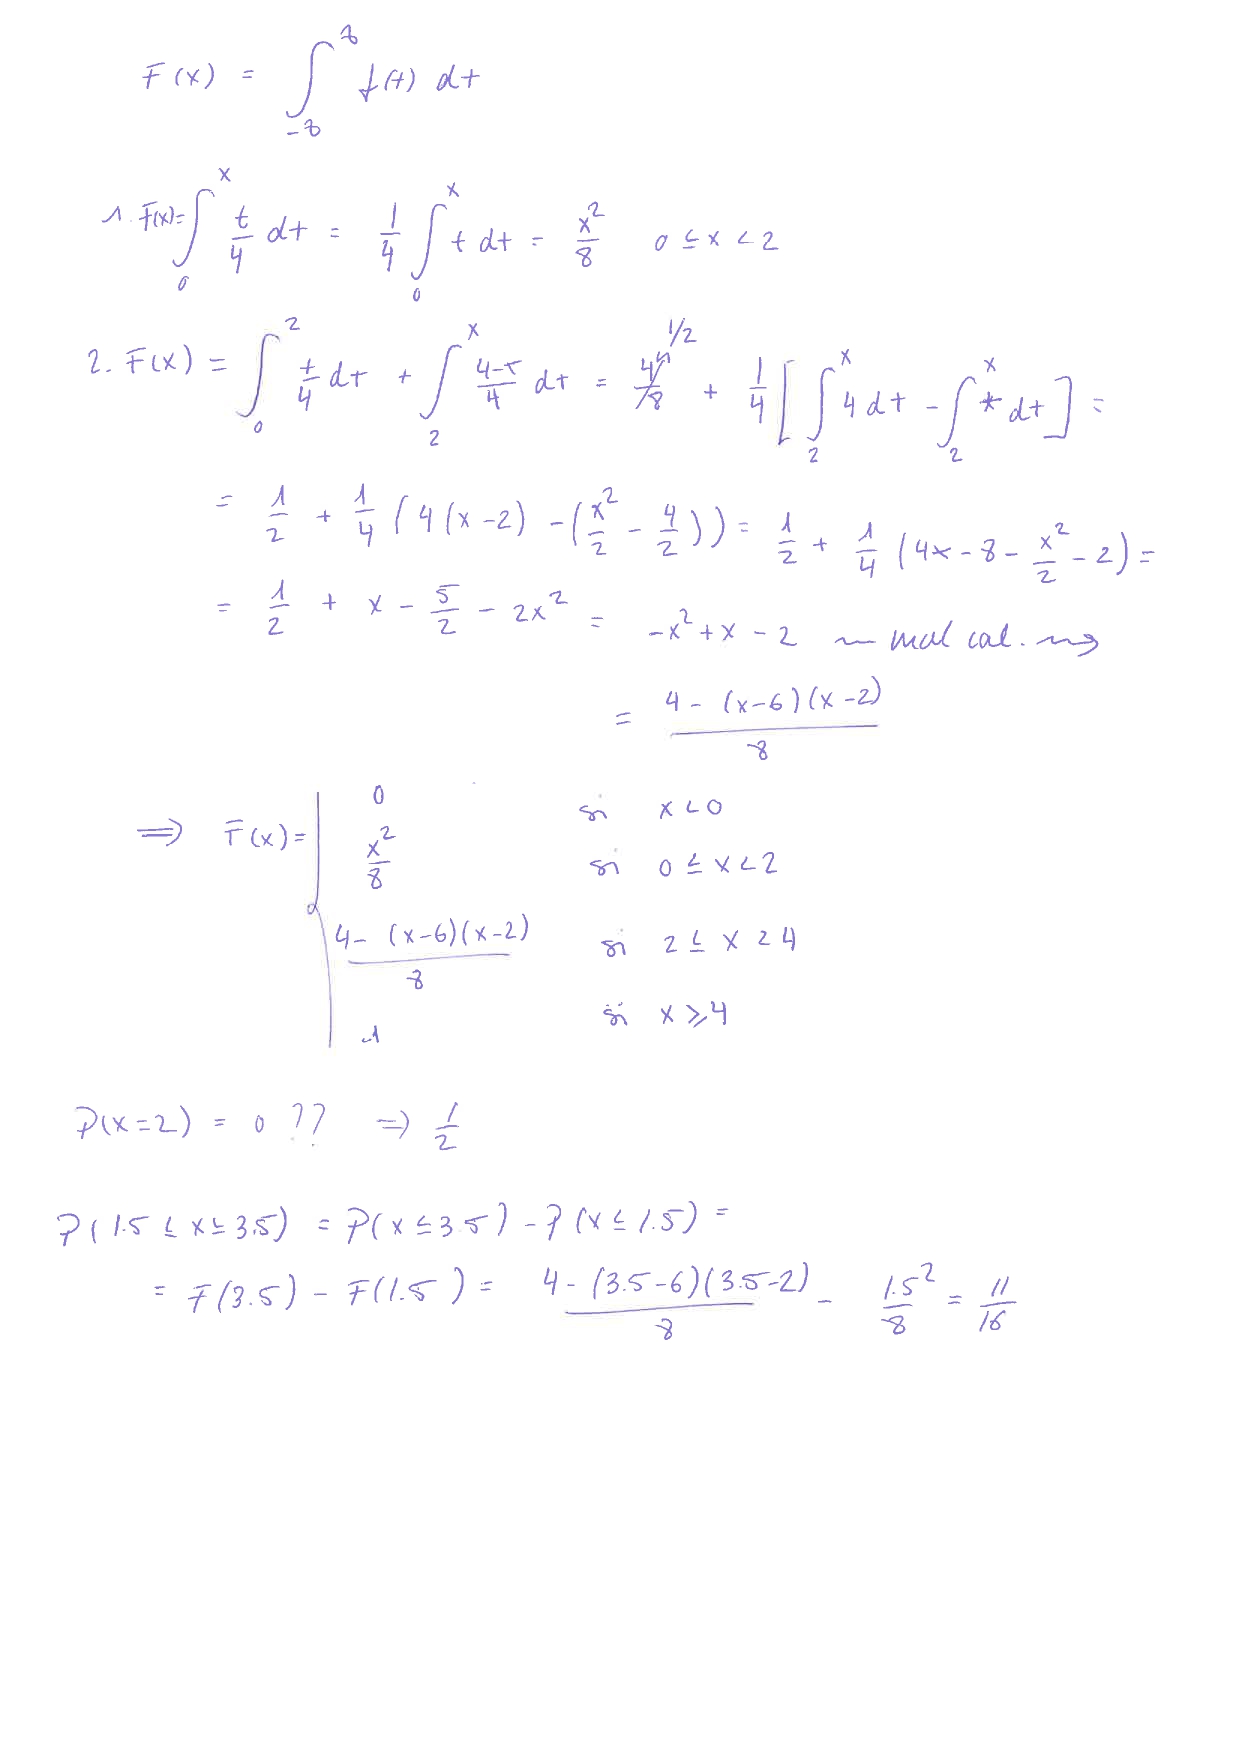 F(x) = ∫_{-8}^{8} f(t) dt
1. F(x)= ∫_{0}^{x} t/4 dt = 1/4 ∫_{0}^{x} t dt = x²/8 0 ≤ x < 2
2. F(x) = ∫_{0}^{2} t/4 dt + ∫_{2}^{x} (4-t)/4 dt = 4/8 1/2 + 1/4 [ ∫_{2}^{x} 4 dt - ∫_{2}^{x} t dt ] =
= 1/2 + 1/4 ( 4(x-2) - (x²/2 - 4/2)) = 1/2 + 1/4 (4x - 8 - x²/2 - 2) =
= 1/2 + x - 5/2 - 2x² = -x² + x - 2 ~ mal cal. ~>
= (4 - (x-6)(x-2))/8
⇒ F(x) = { 0 si x < 0
x²/8 si 0 ≤ x < 2
(4 - (x-6)(x-2))/8 si 2 ≤ x ≥ 4
1 si x ≥ 4
P(x=2) = 0 ?? ⇒ 1/2
P(1.5 ≤ x ≤ 3.5) = P(x ≤ 3.5) - P(x ≤ 1.5) =
= F(3.5) - F(1.5) = (4 - (3.5-6)(3.5-2))/8 - 1.5²/8 = 11/16